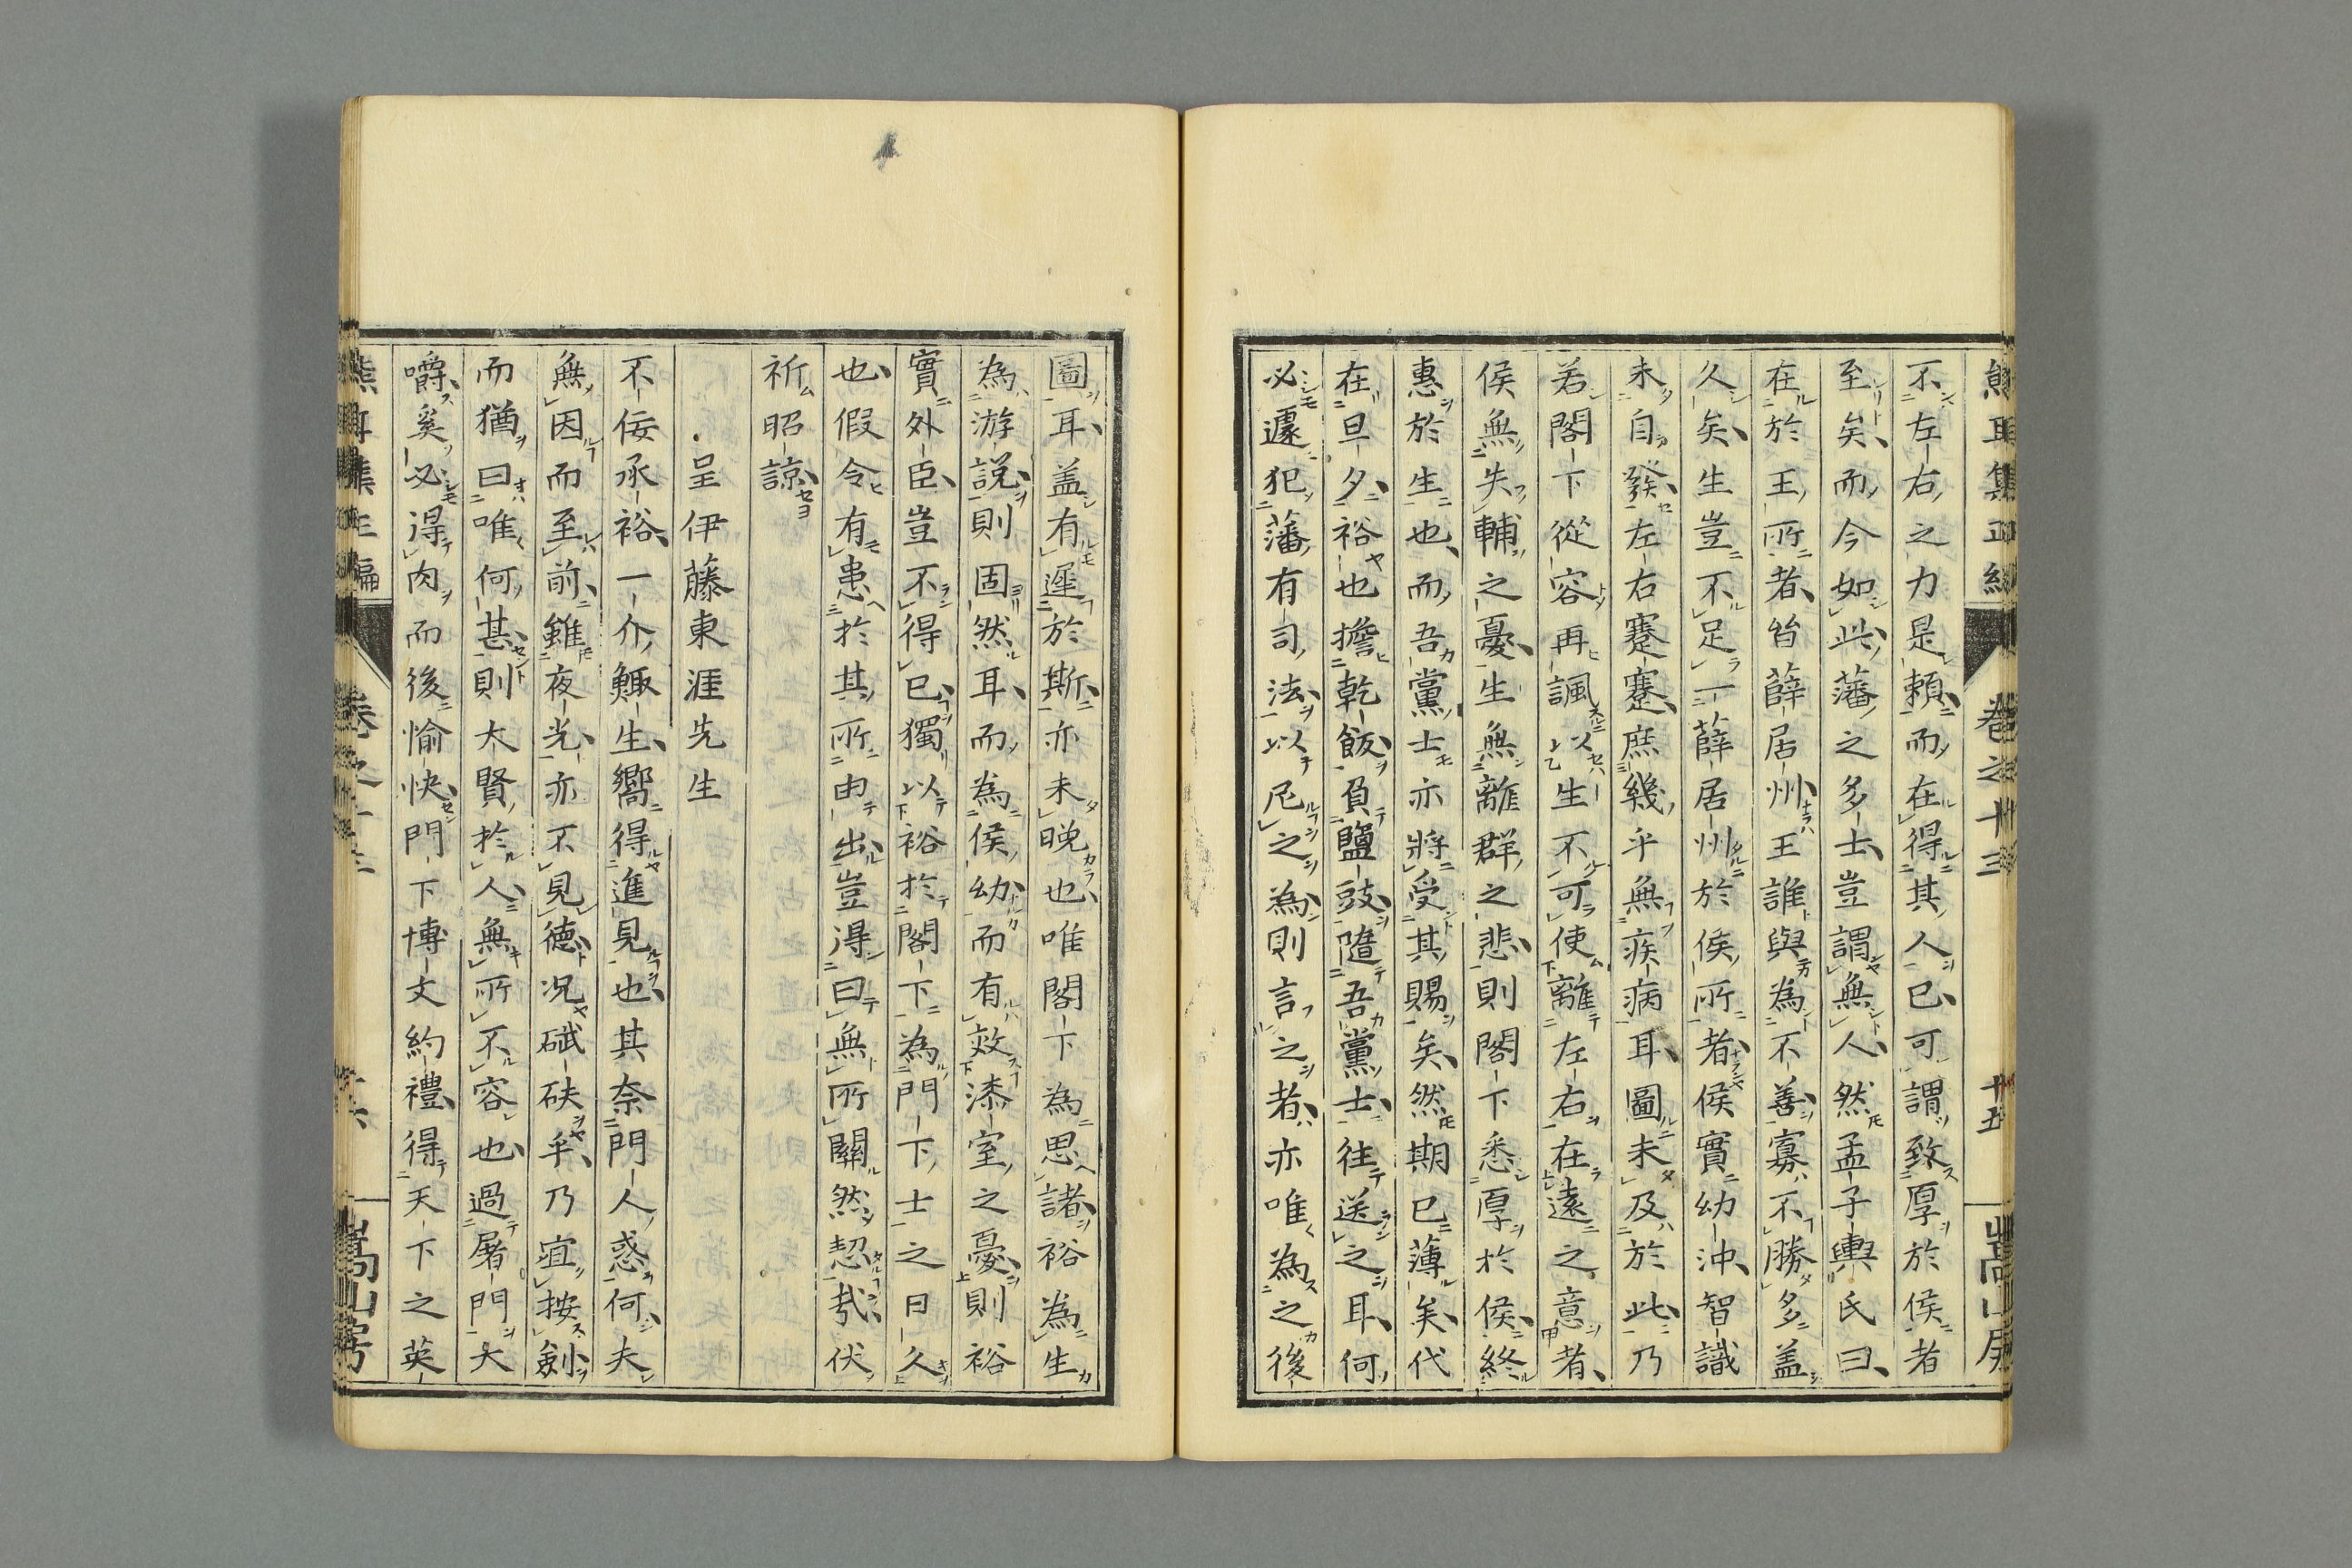 不左右之力是頼而在得其人已可謂致厚於侯者
至矣而今如此藩之多士豈謂無人然孟子輿氏曰
在於王所者皆薛居州王誰與為不善寡不勝多盖
久矣生豈不足一薛居州於侯所者侯實幼沖智識
未自發左右蹇蹇庶幾乎無疾病耳圖未及於此乃
若閣下從容再諷以生不可使離左右在遠之意者
侯無失輔之憂生無離群之悲則閣下悉厚於侯終
惠於生也而吾黨士亦將受其賜矣然期已薄矣代
在旦夕裕也擔乾飯負鹽豉隨吾黨士往送之耳何
必遽犯藩有司法以尼之為則言之者亦唯為之後
圖耳盖有遲於斯亦未晚也唯閣下為思諸裕為生
為游説則固然耳而為侯幼而有效漆室之憂則裕
實外臣豈不得已獨以裕於閣下為門下士之日久
也假令有患於其所由出豈得曰無所關然恝哉伏
祈昭諒
呈伊藤東涯先生
不佞承裕一介鯫生嚮得進見也其奈門人惑何夫
無因而至前雖夜光亦不見德况碔砆乎乃宜按劍
而猶曰唯何甚則大賢於人無所不容也過屠門大
嚼奚必得肉而後愉快門下博文約禮得天下之英